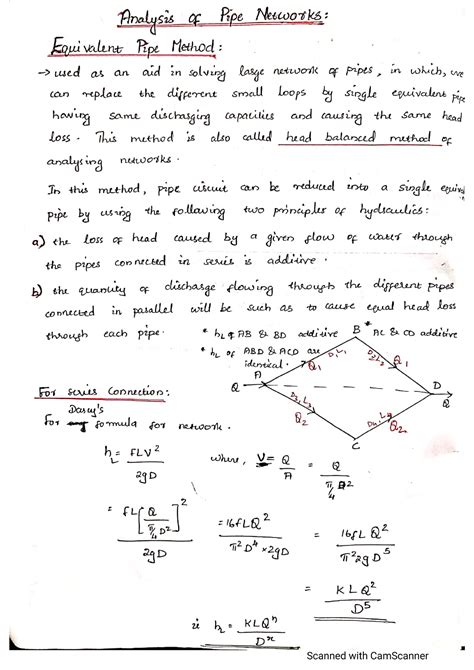 Analysis of Pipe Networks:
Equivalent Pipe Method:
→ used as an aid in solving large network of pipes, in which, we
can replace the different small loops by single equivalent pipe
having same discharging capacities and causing the same head
loss. This method is also called head balanced method of
analysing networks.
In this method, pipe circuit can be reduced into a single equiva
pipe by using the following two principles of hydraulics:
a) the loss of head caused by a given flow of water through
the pipes connected in series is additive.
b) the quantity of discharge flowing through the different pipes
connected in parallel will be such as to cause equal head loss
through each pipe.
* hL of AB & BD additive
* AC & CD additive
* hL of ABD & ACD are
identical.
B
A
D
C
Q
Q
D1 L1
Q1
D2 L2
Q1
D3 L3
Q2
D4 L4
Q2
For series Connection:
Darcy's
For formula for network.
hL = fLV²/2gD
where, V = Q/A = Q/(π/4 D²)
= fL[Q/(π/4 D²)]²/2gD = 16fLQ²/π²D⁴×2gD = 16fLQ²/π²2gD⁵
= KLQ²/D⁵
ie hL = KLQⁿ/Dᵐ
Scanned with CamScanner